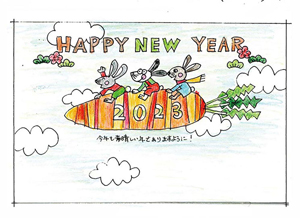 HAPPY NEW YEAR
2023
今年も素晴しい年でありますように！